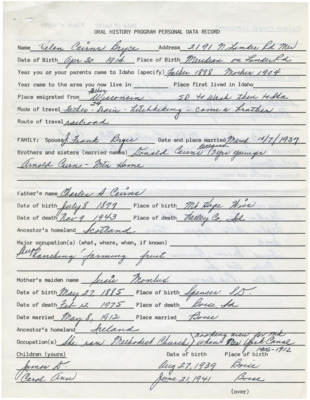 ORAL HISTORY PROGRAM PERSONAL DATA RECORD
Name Helen Cairns Bryce Address 2191 N Linder Rd Mer
Date of Birth Apr 20 1914 Place of Birth Meridian on Linder Rd
Year you or your parents came to Idaho (specify) Father 1898 Mother 1904
Year came to the area you now live in Place first lived in Idaho
Place emigrated from Wisconsin
Mode of travel Father - train - hitchhiking - came a brother
Route of travel railroad
FAMILY: Spouse J Frank Bryce Date and place married 10/7/1937
Brothers and sisters (married name) Donald Cairns younger
Arnold Cairn - Mtn Home
Father's name Charles A Cairns
Date of birth July 8 1879 Place of birth Mt Hope Wisc
Date of death Nov 9 1943 Place of death Valley Co. Id
Ancestor's homeland Scotland
Major occupation(s) (what, where, when, if known)
Ranching farming fruit
Mother's maiden name Susie Monlux
Date of birth May 27, 1885 Place of birth Spencer SD
Date of death Feb 12 1975 Place of death Boise Id
Date married May 8, 1912 Place married Boise
Ancestor's homeland Ireland
Occupation(s) She ran Methodist Church New York Canal
Children (yours) Date of Birth Place of Birth
James D Aug 27, 1939 Boise
Carol Ann June 21, 1941 Boise
(over)